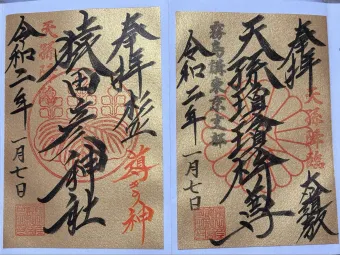 奉拝
天孫降臨
天孫瓊瓊杵尊
霧島講東京支部
令和二年
一月七日
奉拝
導きの神
猿田彦神社
天孫降臨
令和二年
一月七日